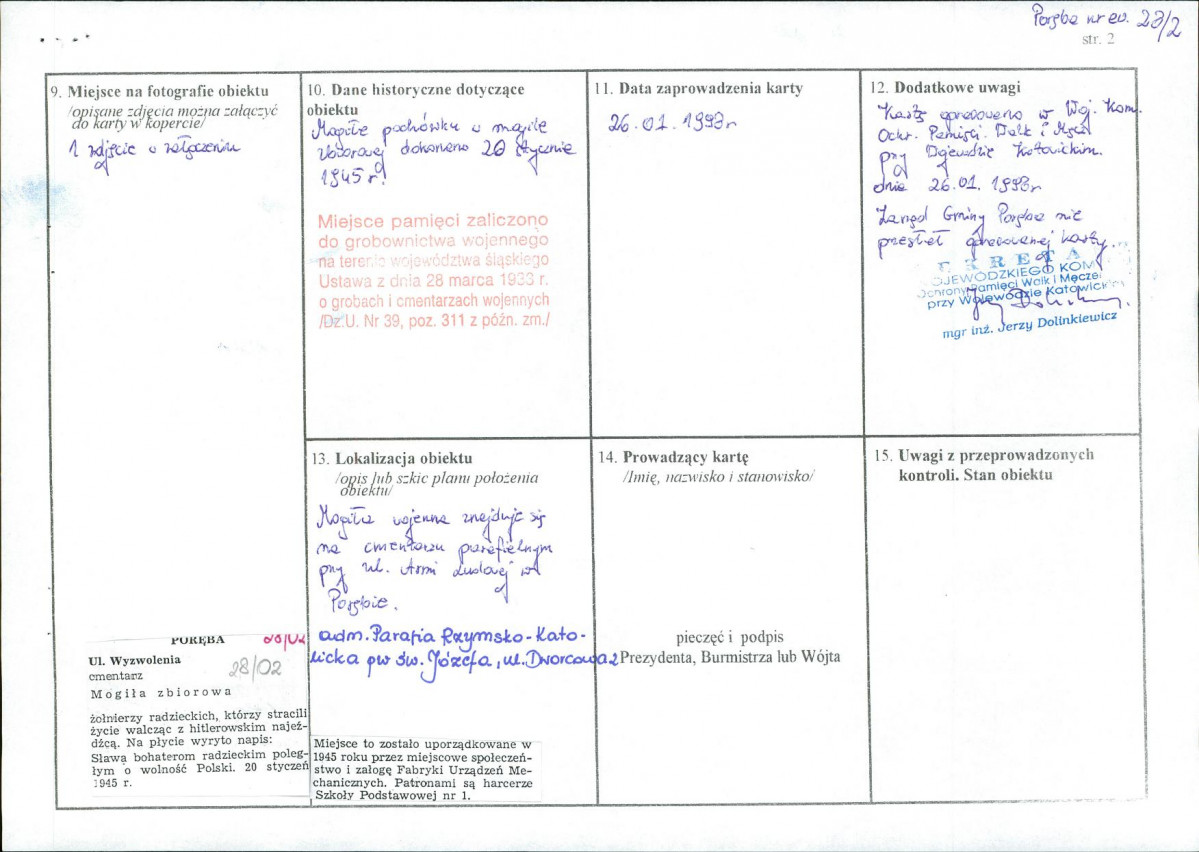 Poręba nr ew. 28/2
str. 2
9. Miejsce na fotografie obiektu
/opisane zdjęcia można załączyć
do karty w kopercie/
1 zdjęcie w załączeniu
10. Dane historyczne dotyczące
obiektu
pochówku w mogile
zbiorowej dokonano 20 stycznia
1945 r.
Miejsce pamięci zaliczono
do grobownictwa wojennego
na terenie województwa śląskiego
Ustawa z dnia 28 marca 1933 r.
o grobach i cmentarzach wojennych
/Dz.U. Nr 39, poz. 311 z późn. zm./
11. Data zaprowadzenia karty
26.01.1998r
12. Dodatkowe uwagi
Kartę opracowano w Woj. Kom.
Ochr. Pamięci Walk i Męcz.
przy Wojewodzie Katowickim.
dnia 26.01.1998r
Zarząd Gminy Poręba nie
przesłał opracowanej karty.
EKRETA
OJEWÓDZKIEGO KOM
Ochrony Pamięci Walk i Męczeń
przy Wojewodzie Katowickim
mgr inż. Jerzy Dolinkiewicz
13. Lokalizacja obiektu
/opis lub szkic planu położenia
obiektu/
Mogiła wojenna znajduje się
na cmentarzu parafialnym
przy ul. Armi Ludowej w
Porębie.
adm. Parafia Rzymsko-Kato-
licka pw św. Józefa, ul. Dworcowa 2
14. Prowadzący kartę
/Imię, nazwisko i stanowisko/
pieczęć i podpis
Prezydenta, Burmistrza lub Wójta
15. Uwagi z przeprowadzonych
kontroli. Stan obiektu
PORĘBA
Ul. Wyzwolenia
cmentarz
28/02
Mogiła zbiorowa
żołnierzy radzieckich, którzy stracili
życie walcząc z hitlerowskim najeź-
dźcą. Na płycie wyryto napis:
Sława bohaterom radzieckim poleg-
łym o wolność Polski. 20 styczeń
1945 r.
Miejsce to zostało uporządkowane w
1945 roku przez miejscowe społeczeń-
stwo i załogę Fabryki Urządzeń Me-
chanicznych. Patronami są harcerze
Szkoły Podstawowej nr 1.